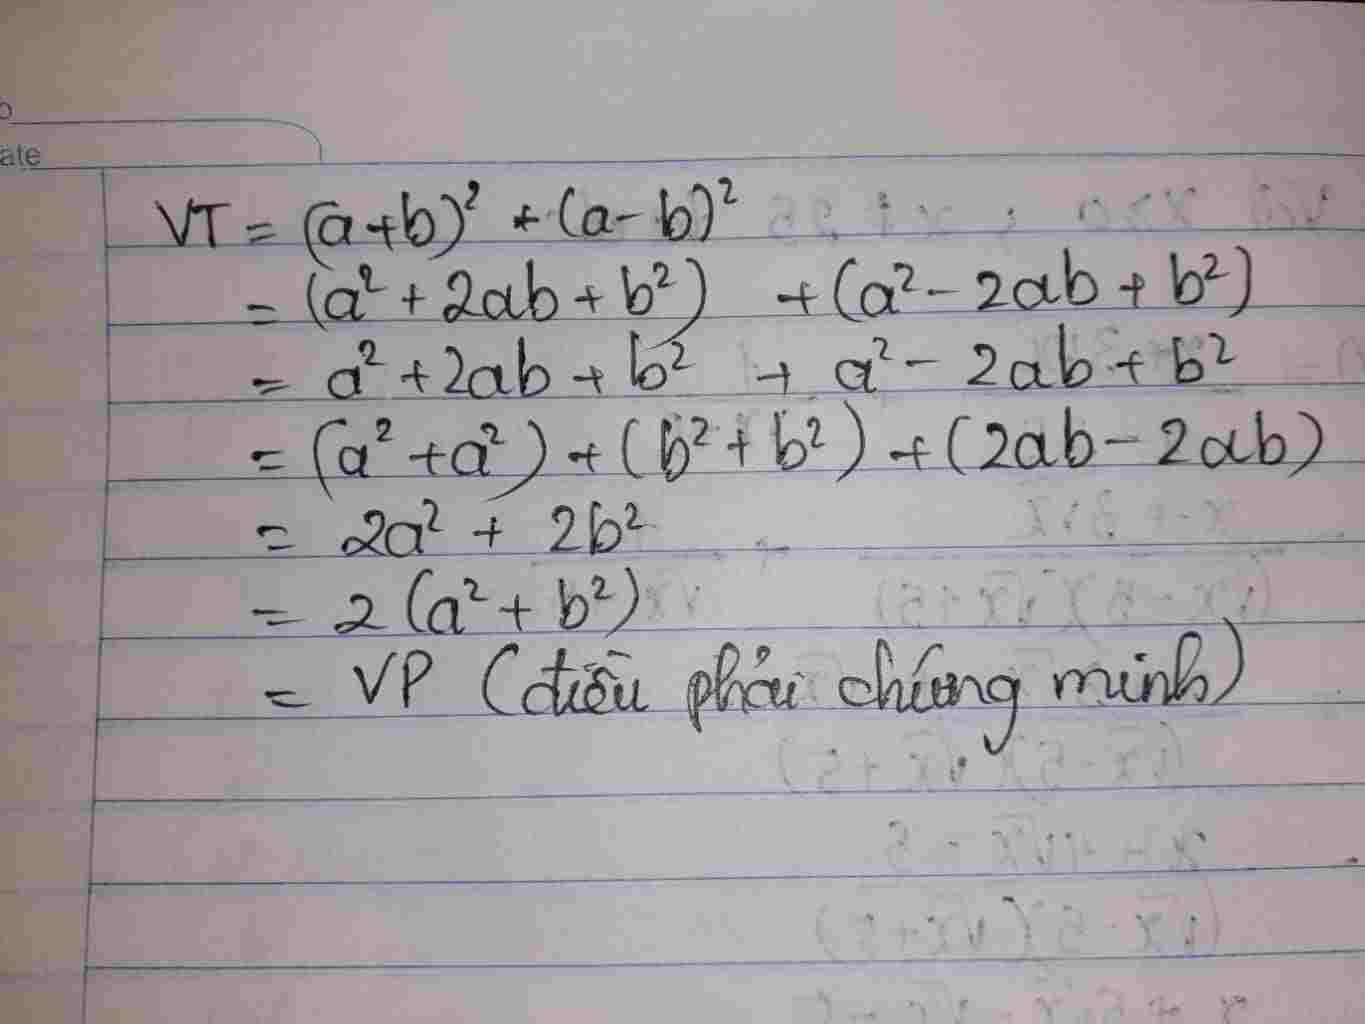 ate
VT = (a+b)² + (a-b)²
= (a² + 2ab + b²) + (a² - 2ab + b²)
= a² + 2ab + b² + a² - 2ab + b²
= (a² + a²) + (b² + b²) + (2ab - 2ab)
= 2a² + 2b²
= 2 (a² + b²)
= VP (điều phải chứng minh)